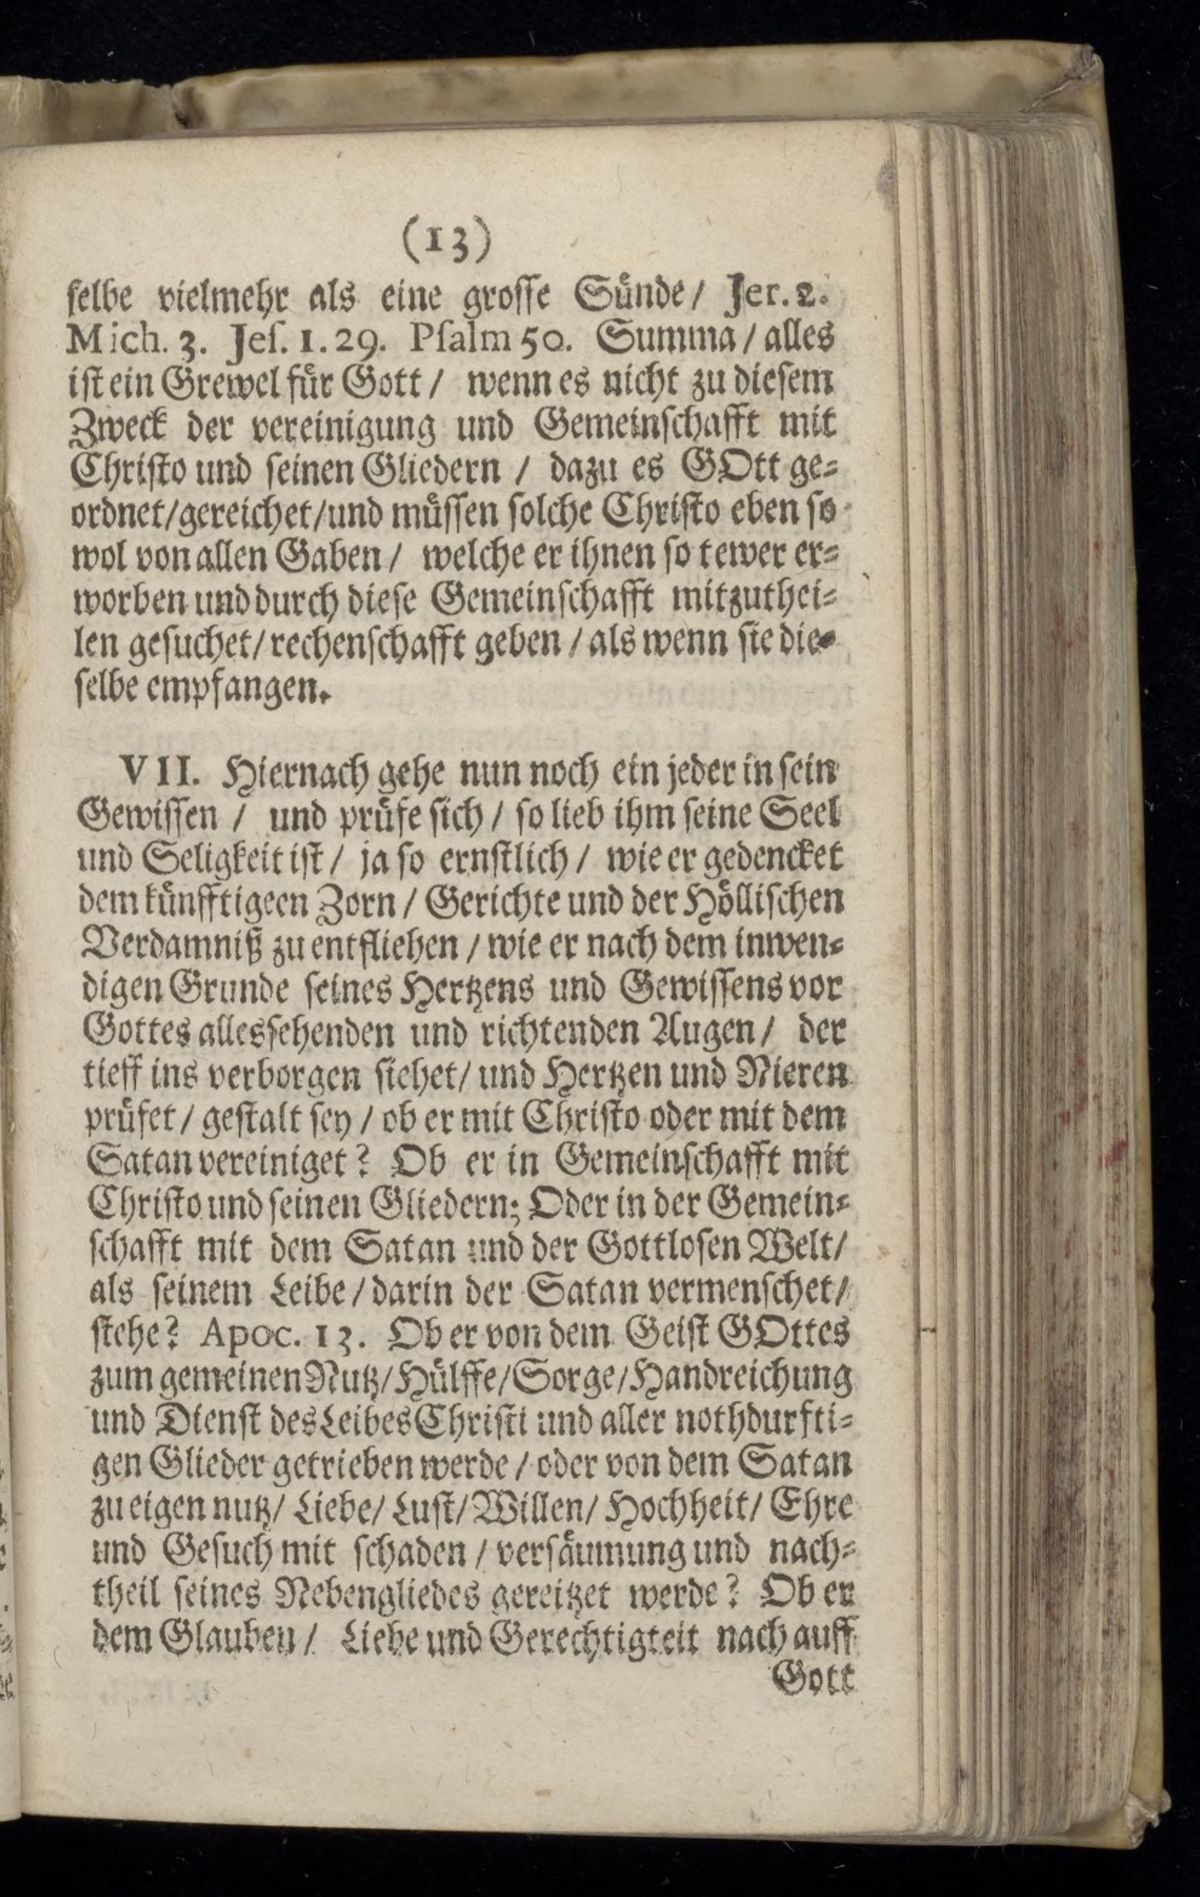 (13)
selbe vielmehr als eine grosse Sünde / Jer. 2.
Mich. 3. Jes. 1. 29. Psalm 50. Summa / alles
ist ein Grewel für Gott / wenn es nicht zu diesem
Zweck der vereinigung und Gemeinschafft mit
Christo und seinen Gliedern / dazu es GOtt ge-
ordnet/gereichet/und müssen solche Christo eben so
wol von allen Gaben / welche er ihnen so tewer er-
worben und durch diese Gemeinschafft mitzuthei-
len gesuchet/rechenschafft geben / als wenn sie die-
selbe empfangen.
VII. Hiernach gehe nun noch ein jeder in sein
Gewissen / und prüfe sich / so lieb ihm seine Seel
und Seligkeit ist / ja so ernstlich / wie er gedencket
dem künfftigeen Zorn / Gerichte und der Höllischen
Verdamniß zu entfliehen / wie er nach dem inwen-
digen Grunde seines Hertzens und Gewissens vor
Gottes allessehenden und richtenden Augen / der
tieff ins verborgen siehet/ und Hertzen und Nieren
prüfet / gestalt sey / ob er mit Christo oder mit dem
Satan vereiniget? Ob er in Gemeinschafft mit
Christo und seinen Gliedern; Oder in der Gemein-
schafft mit dem Satan und der Gottlosen Welt/
als seinem Leibe / darin der Satan vermenschet/
stehe? Apoc. 13. Ob er von dem Geist GOttes
zum gemeinen Nutz/Hülffe/Sorge/Handreichung
und Dienst des Leibes Christi und aller nothdurfti-
gen Glieder getrieben werde / oder von dem Satan
zu eigen nutz/ Liebe/ Lust/ Willen/ Hochheit/ Ehre
und Gesuch mit schaden / versäumung und nach-
theil seines Nebengliedes gereitzet werde? Ob er
dem Glauben / Liebe und Gerechtigteit nach auff
Gott